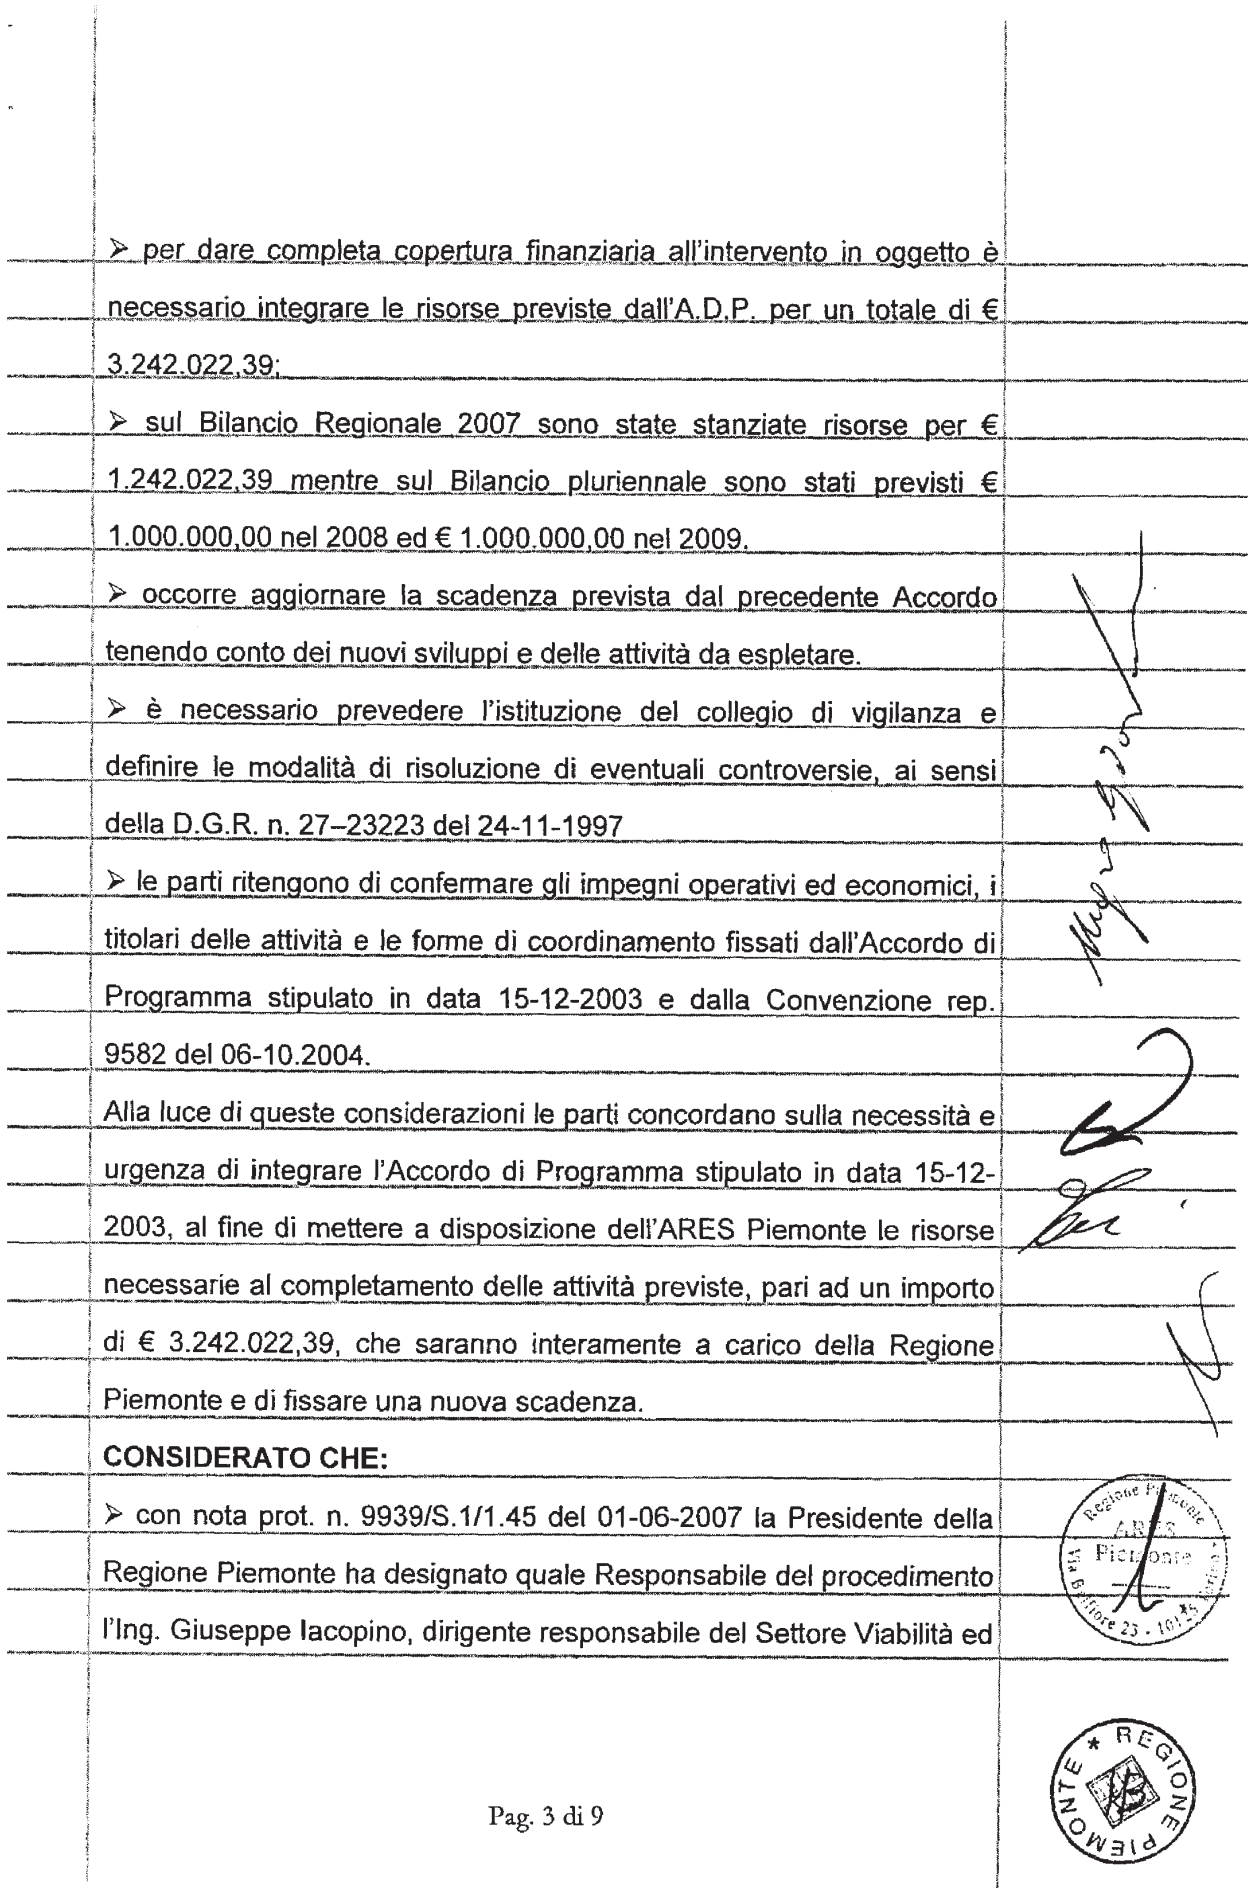 ➢ per dare completa copertura finanziaria all'intervento in oggetto è
necessario integrare le risorse previste dall'A.D.P. per un totale di €
3.242.022,39;
➢ sul Bilancio Regionale 2007 sono state stanziate risorse per €
1.242.022,39 mentre sul Bilancio pluriennale sono stati previsti €
1.000.000,00 nel 2008 ed € 1.000.000,00 nel 2009.
➢ occorre aggiornare la scadenza prevista dal precedente Accordo
tenendo conto dei nuovi sviluppi e delle attività da espletare.
➢ è necessario prevedere l'istituzione del collegio di vigilanza e
definire le modalità di risoluzione di eventuali controversie, ai sensi
della D.G.R. n. 27–23223 del 24-11-1997
➢ le parti ritengono di confermare gli impegni operativi ed economici, i
titolari delle attività e le forme di coordinamento fissati dall'Accordo di
Programma stipulato in data 15-12-2003 e dalla Convenzione rep.
9582 del 06-10.2004.
Alla luce di queste considerazioni le parti concordano sulla necessità e
urgenza di integrare l'Accordo di Programma stipulato in data 15-12-
2003, al fine di mettere a disposizione dell'ARES Piemonte le risorse
necessarie al completamento delle attività previste, pari ad un importo
di € 3.242.022,39, che saranno interamente a carico della Regione
Piemonte e di fissare una nuova scadenza.
CONSIDERATO CHE:
➢ con nota prot. n. 9939/S.1/1.45 del 01-06-2007 la Presidente della
Regione Piemonte ha designato quale Responsabile del procedimento
l'Ing. Giuseppe Iacopino, dirigente responsabile del Settore Viabilità ed
Regione Piemonte
ARES
Piemonte
Via Belfiore 23 - 10125
* REGIONE PIEMONTE
Pag. 3 di 9